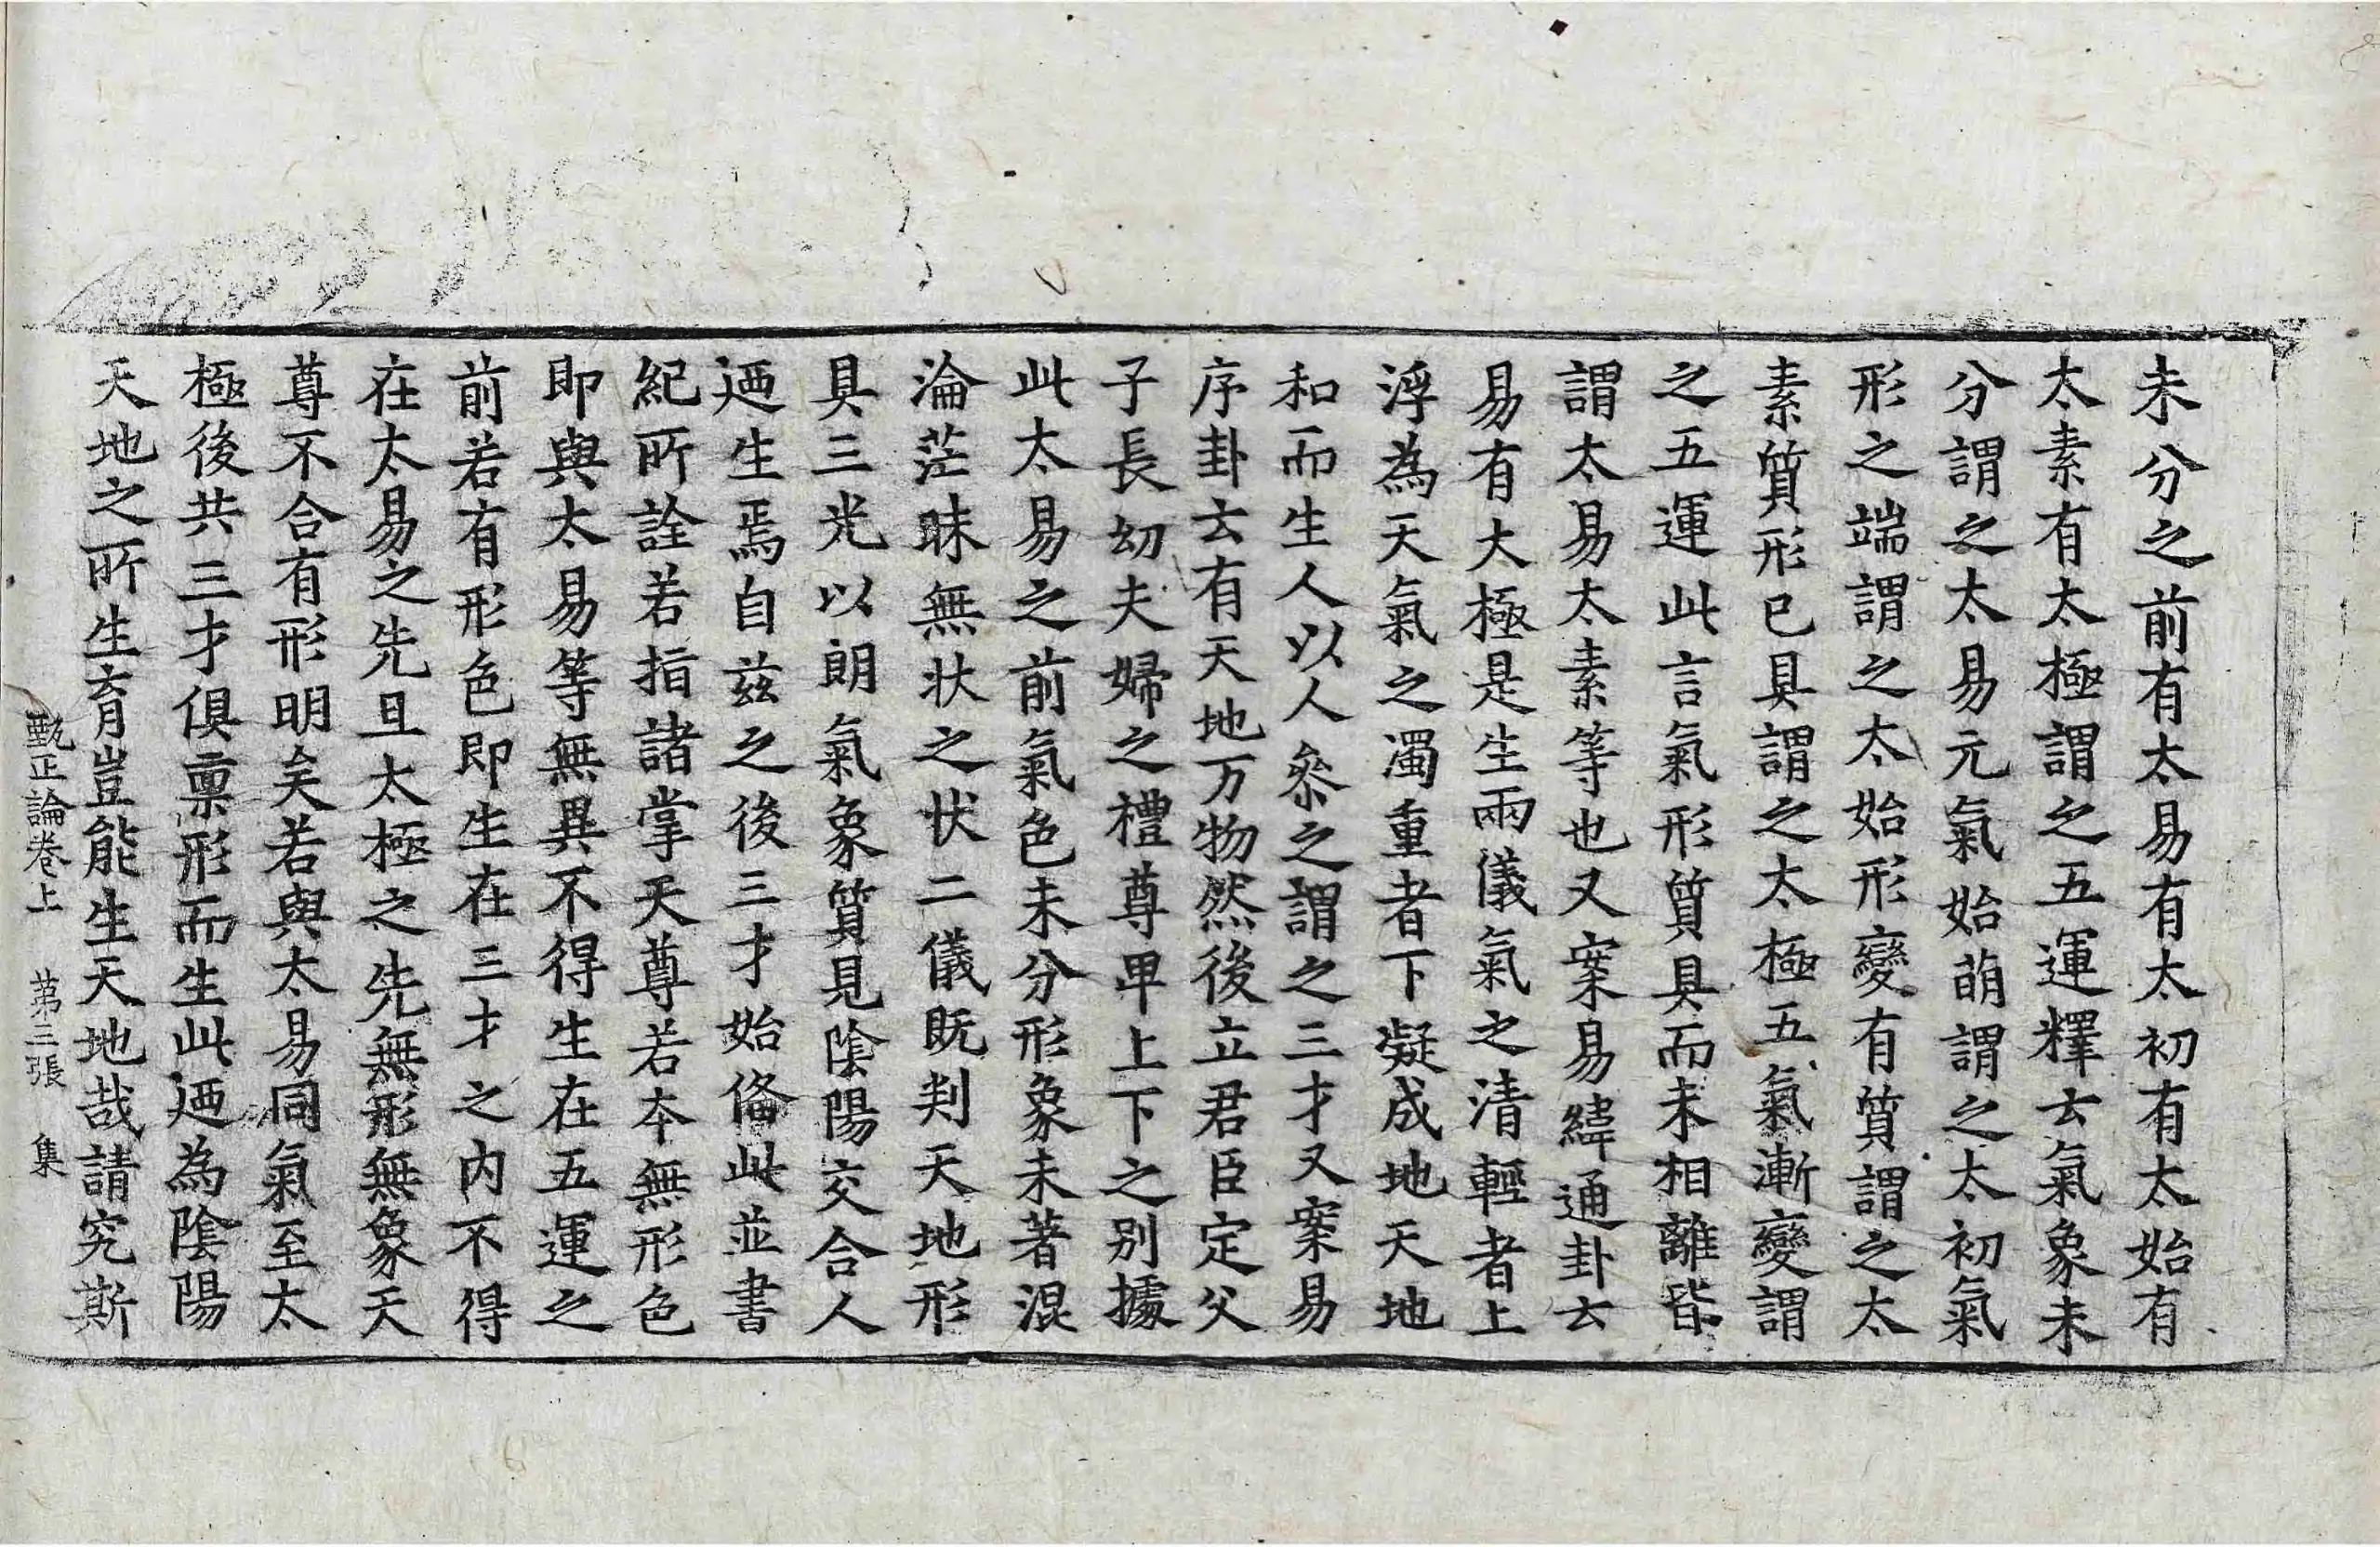 未分之前有太易有太初有太始有
太素有太極謂之五運釋云氣象未
分謂之太易元氣始萌謂之太初氣
形之端謂之太始形變有質謂之太
素質形已具謂之太極五氣漸變謂
之五運此言氣形質具而未相離皆
謂太易太素等也又案易緯通卦云
易有太極是生兩儀氣之清輕者上
浮為天氣之濁重者下凝成地天地
和而生人以人叅之謂之三才又案易
序卦云有天地万物然後立君臣定父
子長幼夫婦之禮尊卑上下之別據
此太易之前氣色未分形象未著混
淪茫昧無狀之狀二儀既判天地形
具三光以朗氣象質見陰陽交合人
迺生焉自茲之後三才始俻此並書
紀所詮若指諸掌天尊若本無形色
即與太易等無異不得生在五運之
前若有形色即生在三才之内不得
在太易之先且太極之先無形無象天
尊不合有形明矣若與太易同氣至太
極後共三才俱稟形而生此迺為陰陽
天地之所生育豈能生天地哉請究斯
甄正論卷上 第三張 集